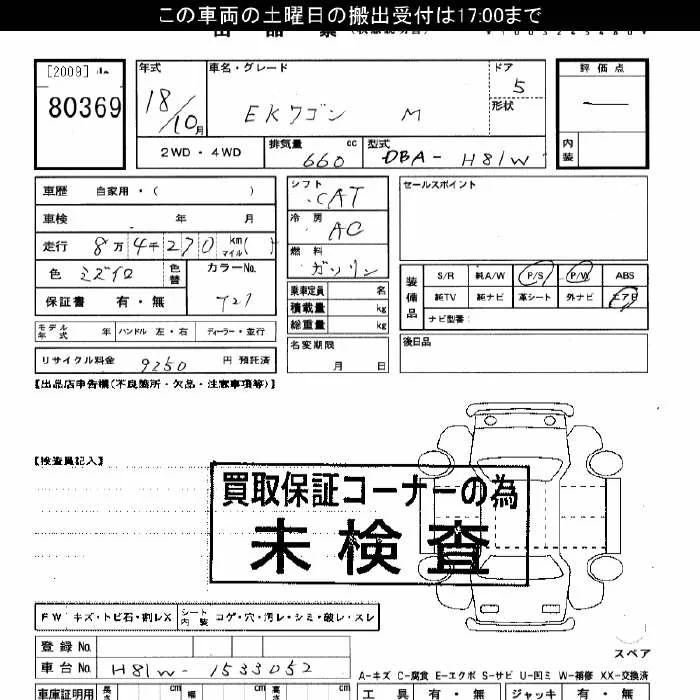 この車両の土曜日の搬出受付は17:00まで
[2009]
80369
年式 18/10月
車名・グレード EKワゴン M
ドア 5
形状
評価点
内装
2WD・4WD
排気量 660 cc
型式 DBA-H81W
車歴 自家用・( )
車検 年 月
走行 8万4千270 km マイル( )
色 ミズイロ 色替
カラーNo. T27
保証書 有・無
モデル年式 年 ハンドル 左・右 ディーラー・並行
リサイクル料金 9250 円 預託済
シフト CAT
冷房 AC
燃料 ガソリン
乗車定員 名
積載量 kg
総重量 kg
名変期限 月 日
セールスポイント
装備品 S/R 純A/W P/S P/W ABS
純TV 純ナビ 革シート 外ナビ エアB
ナビ型番:
後日品
【出品店申告欄(不良箇所・欠品・注意事項等)】
【検査員記入】
買取保証コーナーの為
未検査
FW キズ・トビ石・割レX シート内装 コゲ・穴・汚レ・シミ・破レ・スレ
登録No.
車台No. H81W-1533052
スペア
A-キズ C-腐食 E-エクボ S-サビ U-凹ミ W-補修 XX-交換済
車庫証明用 長さ cm 幅 cm 高さ cm
工具 有・無 ジャッキ 有・無